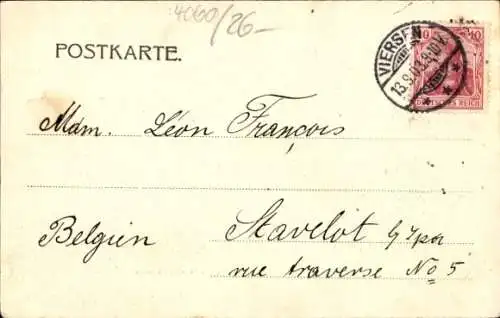 4060/26-
POSTKARTE.
VIERSEN
13.9.03.9-10V.
10 10
DEUTSCHES REICH
Mdm. Léon François
Belgien Stavelot b/Spa
rue traverse No 5